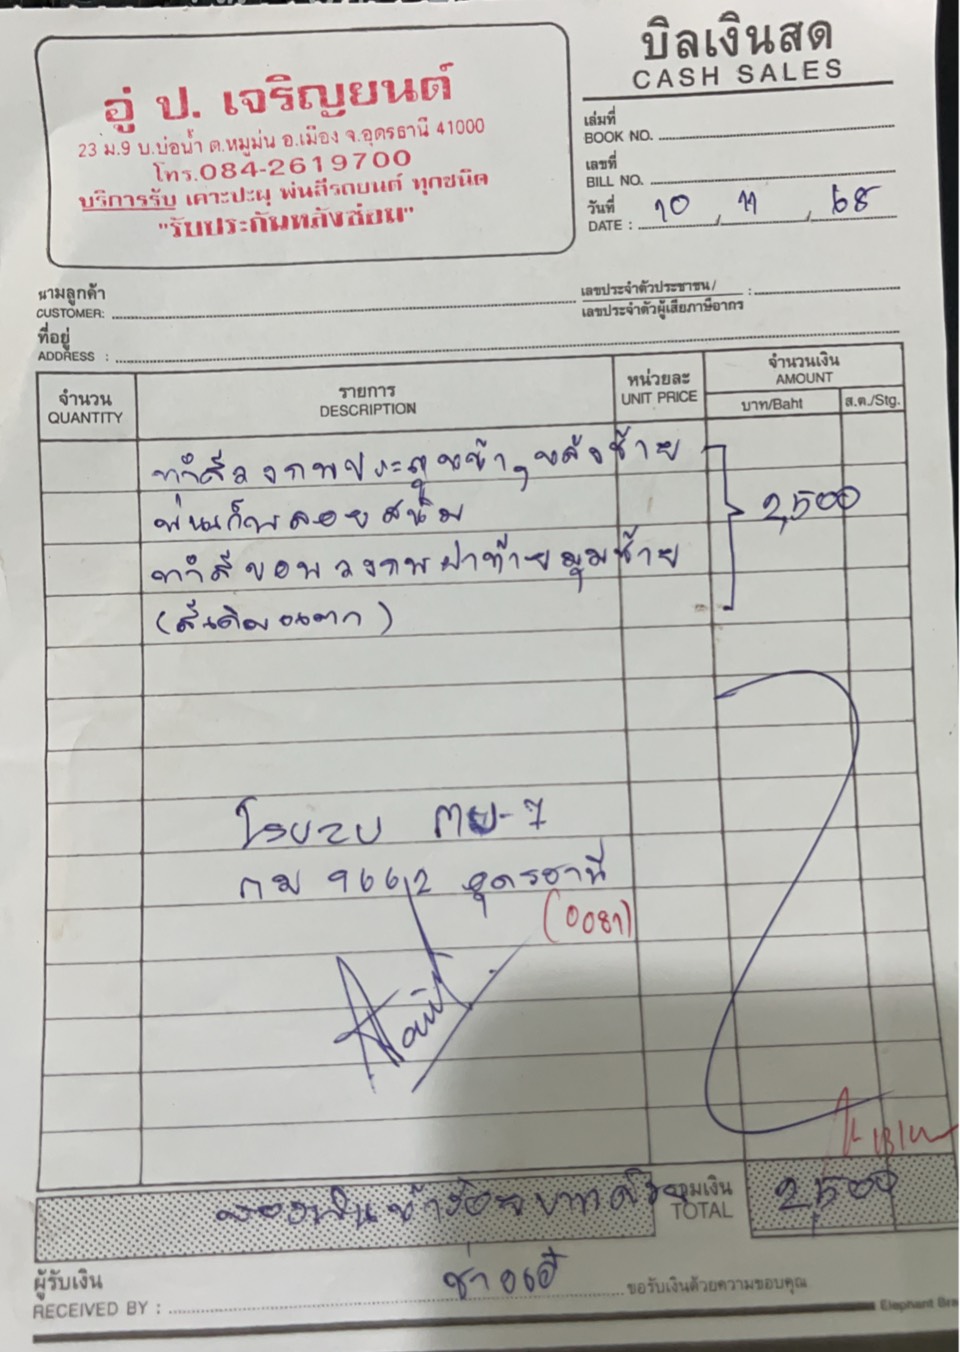 บิลเงินสด
CASH SALES
อู่ ป. เจริญยนต์
23 ม.9 บ.บ่อน้ำ ต.หมูม่น อ.เมือง จ.อุดรธานี 41000
โทร.084-2619700
บริการรับ เคาะปะผุ พ่นสีรถยนต์ ทุกชนิด
"รับประกันหลังซ่อม"
เล่มที่
BOOK NO.
เลขที่
BILL NO.
วันที่
DATE : 10 , 11 , 68
นามลูกค้า
CUSTOMER:
เลขประจำตัวประชาชน/
เลขประจำตัวผู้เสียภาษีอากร :
ที่อยู่
ADDRESS :
จำนวน
QUANTITY
รายการ
DESCRIPTION
หน่วยละ
UNIT PRICE
จำนวนเงิน
AMOUNT
บาท/Baht
ส.ต./Stg.
ทำสีวงกบประตูหน้า, หลังซ้าย
พ่นเก็บลอยสนิม 2,500
ทำสีขอบวงกบฝาท้ายมุมซ้าย
(สีเดิมแตก)
7
กม 9662 อุดรธานี
(0081)
สองพันห้าร้อยบาทถ้วน
รวมเงิน
TOTAL
2,500
ผู้รับเงิน
RECEIVED BY :
ขอรับเงินด้วยความขอบคุณ
Elephant Bra